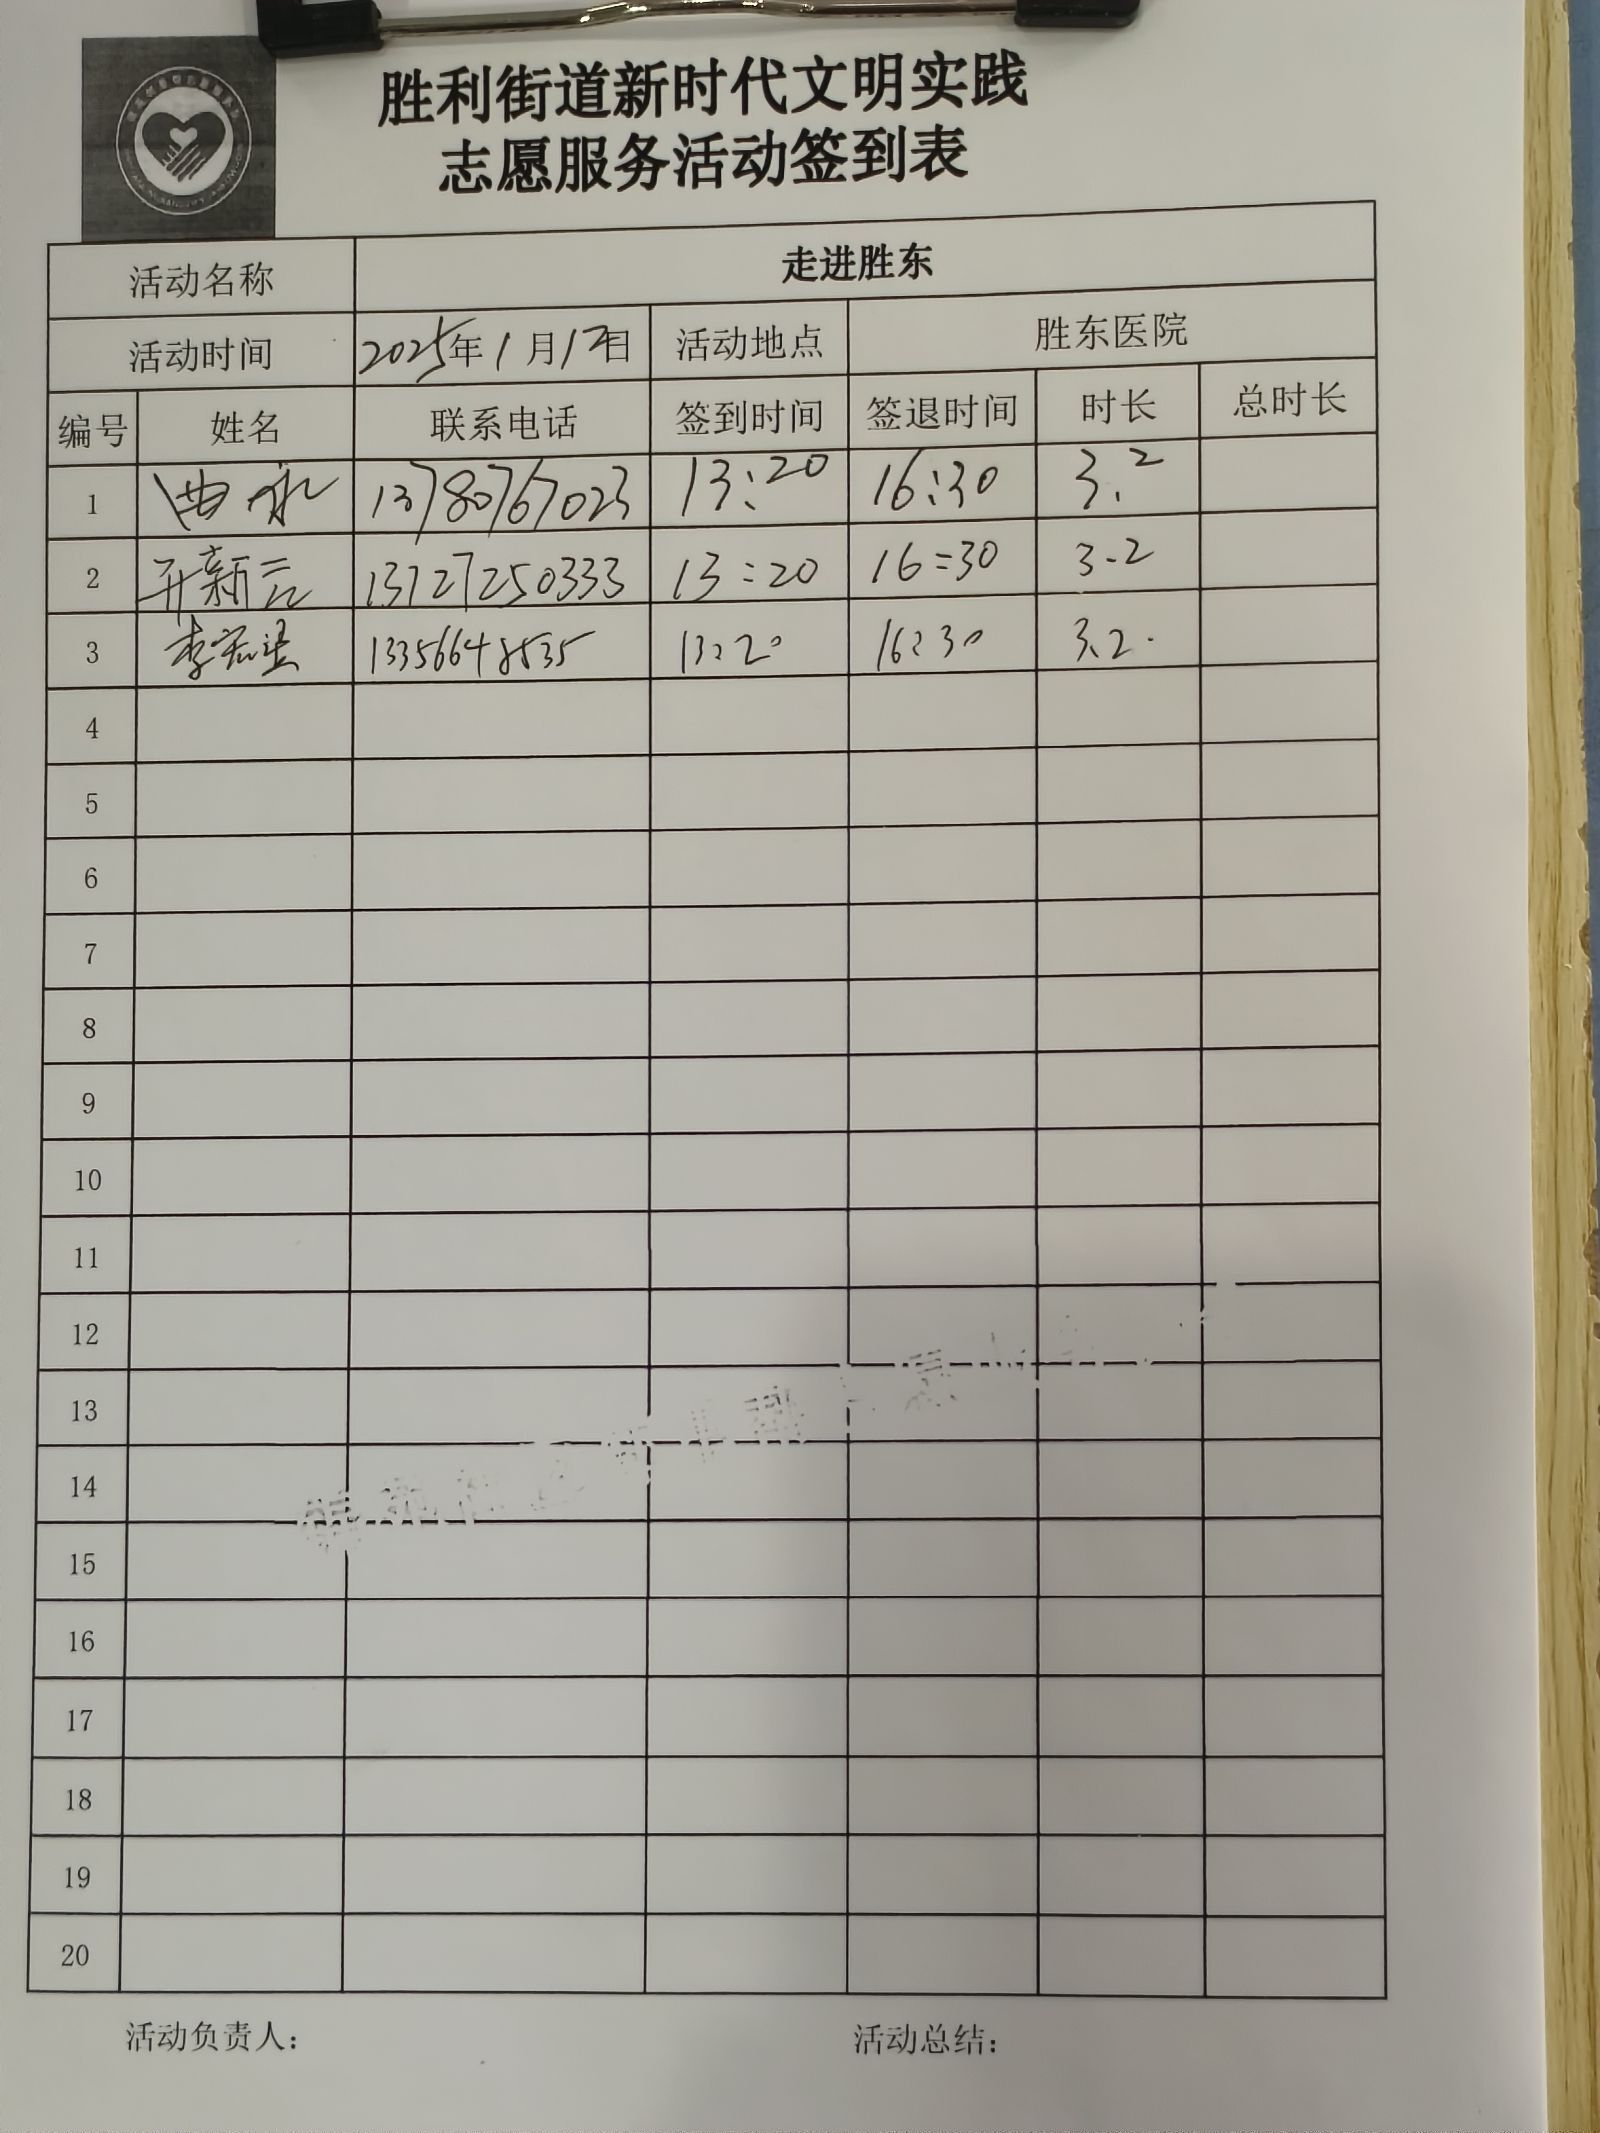 胜利街道新时代文明实践
志愿服务活动签到表
活动名称 走进胜东
活动时间 2025年1月17日 活动地点 胜东医院
编号 姓名 联系电话 签到时间 签退时间 时长 总时长
1 曲永 13780767023 13:20 16:30 3.2
2 新云 13727250333 13:20 16:30 3.2
3 李 13356648535 13:20 16:30 3.2
4
5
6
7
8
9
10
11
12
13
14
15
16
17
18
19
20
活动负责人: 活动总结: